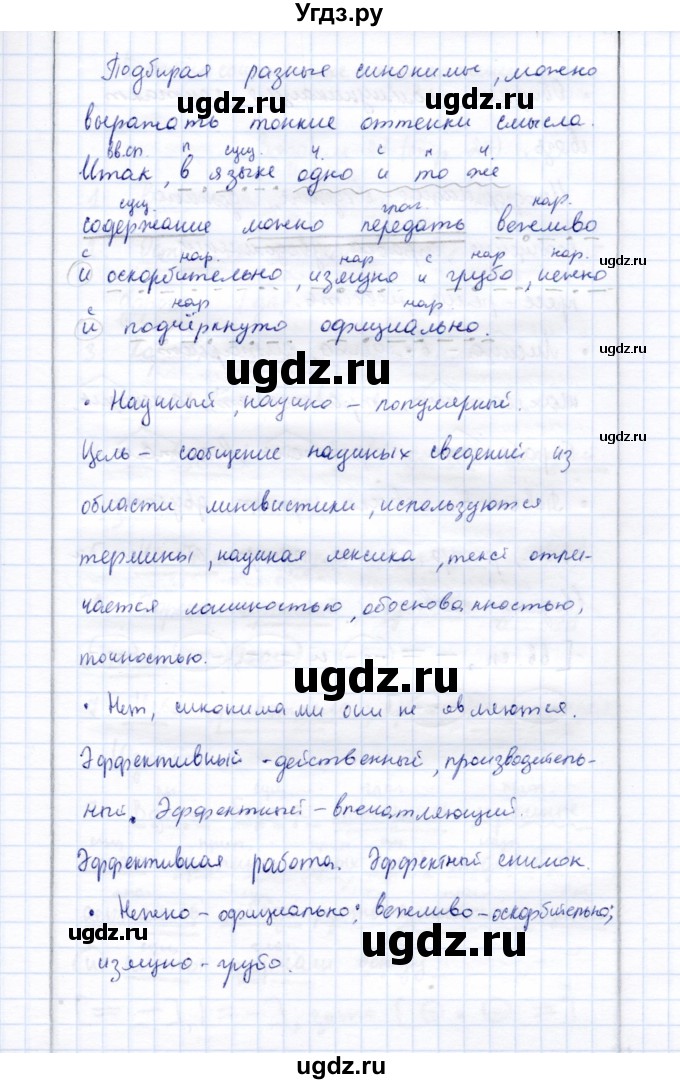 Угдз.ру
Подбирая разные синонимы, можно
ugdz.ru ugdz.ru
выражать тонкие оттенки смысла.
вв.сл. п сущ. ч. с м ч.
Итак, в языке одно и то же
сущ. глаг нар.
содержание можно передать вежливо
с нар. нар с нар нар.
и оскорбительно, изящно и грубо, нежно
с нар нар
и подчёркнуто официально.
ugdz.ru
ugdz.ru
• Научный, научно – популярный.
ugdz.ru
Цель – сообщение научных сведений из
области лингвистики, используются
термины, научная лексика, текст отли-
чается логичностью, обоснованностью,
точностью.
ugdz.ru
• Нет, синонимами они не являются.
Эффективный - действенный, производитель-
ный. Эффектный – впечатляющий.
ugdz.ru
Эффективная работа. Эффектный снимок.
• Нежно – официально; вежливо – оскорбительно;
ugdz.ru ugdz.ru
изящно – грубо.
ugdz.ru